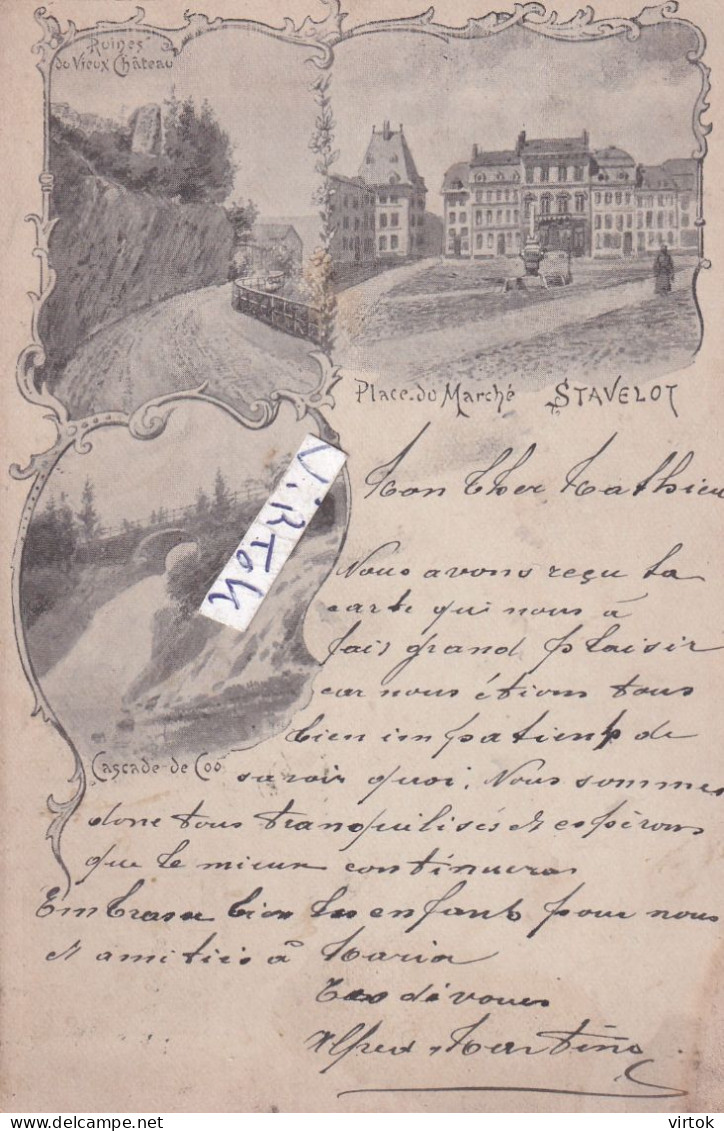 Ruines
du Vieux Château
Place du Marché STAVELOT
Cascade de Coo
V.RToK
Mon Cher Mathieu
Nous avons reçu ta
carte qui nous à
fais grand plaisir
car nous étions tous
bien impatient de
savoir quoi. Nous sommes
donc tous tranquilisés et espérons
que le mieux continuera
Embrasse bien les enfants pour nous
et amitiés à Maria
dévoués
Alfred Martino
virtok